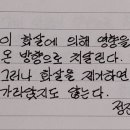 이 화살에 의해 영향을
온 방향으로 치달린다.
그러나 화살을 제거하면
가라앉지도 않는다.